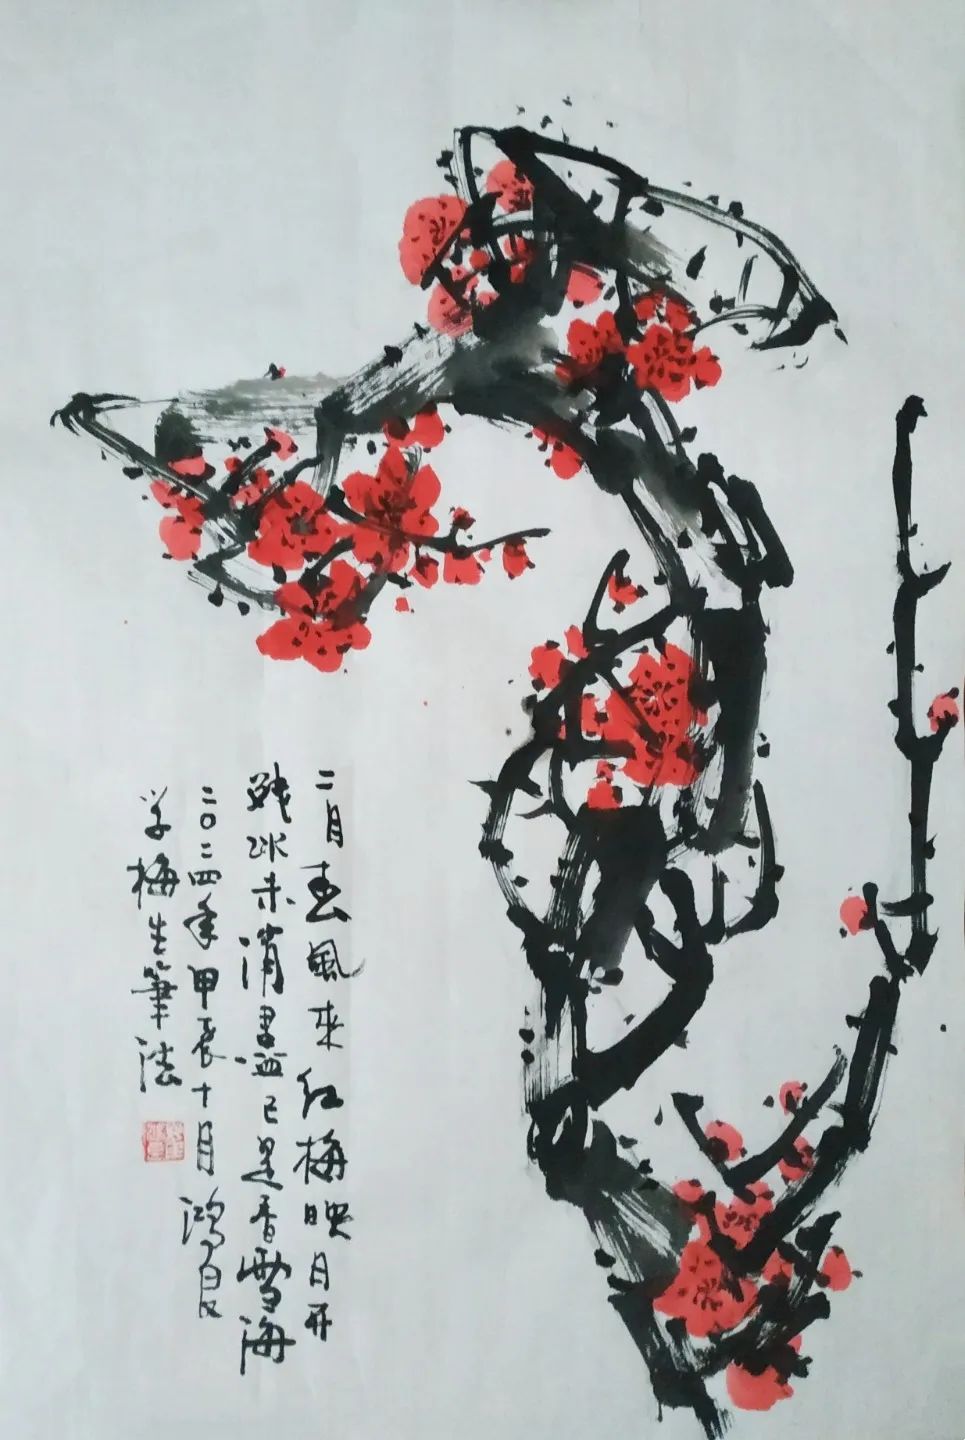 二月春風來红梅映月开
残冰未消盡已是香雪海
二〇二四年甲辰十月鸿
学梅生筆法